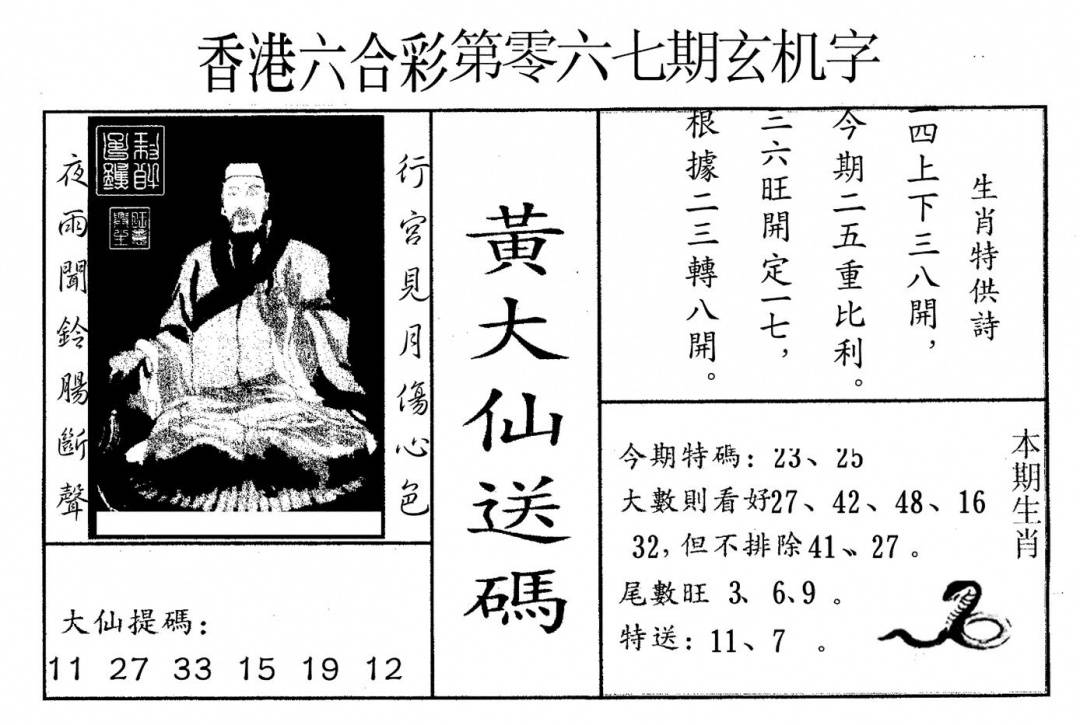 香港六合彩第零六七期玄机字
行宮見月傷心色
夜雨聞鈴腸斷聲
大仙提碼：
11 27 33 15 19 12
黃大仙送碼
生肖特供詩
一四上下三八開，
今期二五重比利。
三六旺開定一七，
根據二三轉八開。
本期生肖
今期特碼：23、25
大數則看好27、42、48、16
32，但不排除41、27。
尾數旺 3、6、9。
特送：11、7 。